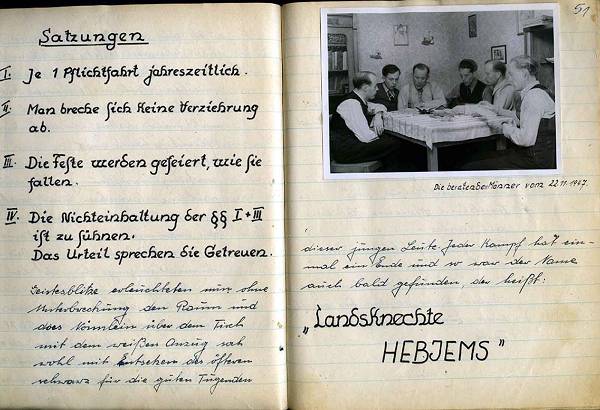 Satzungen
I. Je 1 Pflichtfahrt jahreszeitlich.
II. Man breche sich keine Verziehrung
ab.
III. Die Feste werden gefeiert, wie sie
fallen.
IV. Die Nichteinhaltung der §§ I + III
ist zu sühnen.
Das Urteil sprechen die Getreuen.
Geistesblitze erleuchteten nun ohne
Unterbrechung den Raum und
das über dem Tisch
mit dem weißen Anzug sah
wohl mit Entsetzen des öfteren
schwarz für die guten Tugenden
51
Die beratenden Männer vom 22.11.1947.
dieser jungen Leute. Jeder Kampf hat ein-
mal ein Ende und so war der Name
auch bald gefunden, der heißt:
"Landsknechte
HEBJEMS"